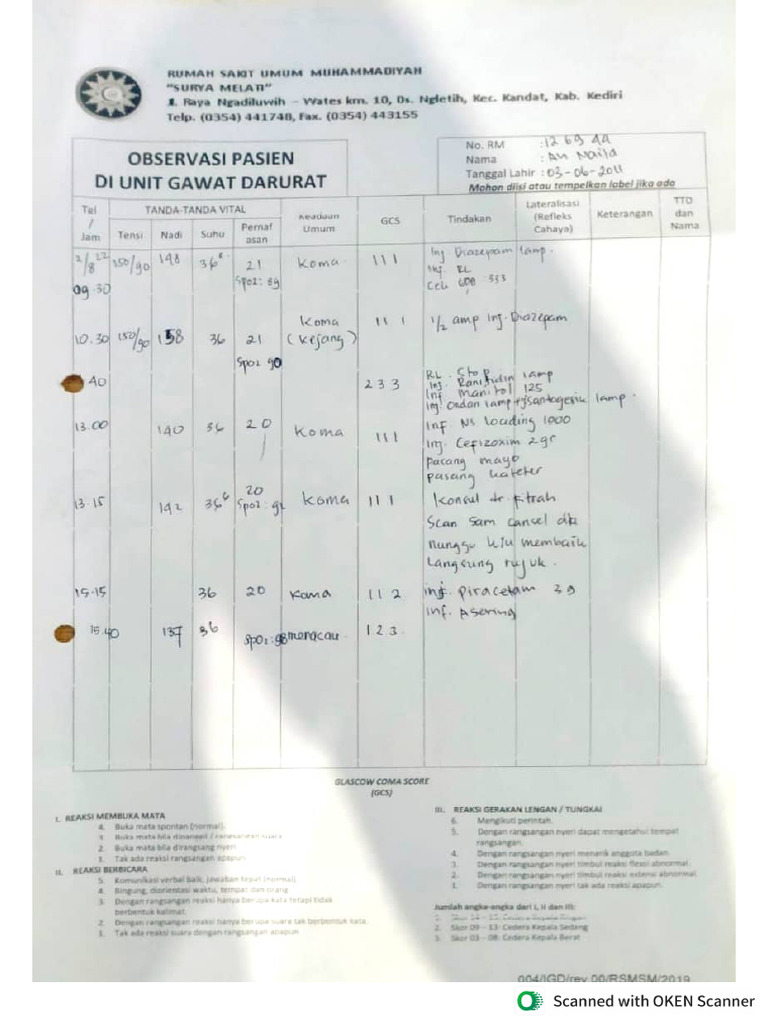 RUMAH SAKIT UMUM MUHAMMADIYAH
"SURYA MELATI"
Jl. Raya Ngadiluwih – Wates km. 10, Ds. Ngletih, Kec. Kandat, Kab. Kediri
Telp. (0354) 441748, Fax. (0354) 443155
OBSERVASI PASIEN
DI UNIT GAWAT DARURAT
No. RM : 12 69 44
Nama : An Naila
Tanggal Lahir : 03-06-2011
Mohon diisi atau tempelkan label jika ada
Tgl / Jam TANDA-TANDA VITAL Keadaan Umum GCS Tindakan Lateralisasi (Refleks Cahaya) Keterangan TTD dan Nama
Tensi Nadi Suhu Pernafasan
2/8 22 150/90 148 36 21 Koma 111 Inj Diazepam 1amp.
Spo2: 89 Inj. RL
09.30 Cek 333
10.30 150/90 158 36 21 Koma (kejang) 111 1/2 amp Inj. Diazepam
Spo2 90
40 233 RL. Stop
Inj. Ranitidin 1amp
Inf Manitol 125
Inj Ondan 1amp 1amp.
13.00 140 36 20 Koma 111 Inf. NS loading 1000
Inj. Cefizoxim 2gr
pacang mayo
pasang kateter
13.15 142 36 20 Koma 111 Konsul dr Fitrah
Spo2: 92
Scan Sam cancel dk
nunggu k/u membaik
langsung rujuk.
15.15 36 20 Koma 112 inj. piracetam 3g
inf. Asering
15.40 137 36 Spo2: 98 meracau 123
GLASCOW COMA SCORE
(GCS)
I. REAKSI MEMBUKA MATA
4. Buka mata spontan (normal).
3. Buka mata bila dipanggil / rangsangan suara
2. Buka mata bila dirangsang nyeri
1. Tak ada reaksi rangsangan apapun
II. REAKSI BERBICARA
5. Komunikasi verbal baik, jawaban tepat (normal)
4. Bingung, disorientasi waktu, tempat dan orang
3. Dengan rangsangan reaksi hanya berupa kata tetapi tidak
berbentuk kalimat.
2. Dengan rangsangan reaksi hanya berupa suara tak berbentuk kata.
1. Tak ada reaksi suara dengan rangsangan apapun
III. REAKSI GERAKAN LENGAN / TUNGKAI
6. Mengikuti perintah.
5. Dengan rangsangan nyeri dapat mengetahui tempat
rangsangan.
4. Dengan rangsangan nyeri menarik anggota badan.
3. Dengan rangsangan nyeri timbul reaksi flexi abnormal.
2. Dengan rangsangan nyeri timbul reaksi extensi abnormal.
1. Dengan rangsangan nyeri tak ada reaksi apapun.
Jumlah angka-angka dari I, II dan III:
1. Skor 14 – 15: Cedera Kepala Ringan
2. Skor 09 – 13: Cedera Kepala Sedang
3. Skor 03 – 08: Cedera Kepala Berat
004/IGD/rev.00/RSMSM/2019
Scanned with OKEN Scanner